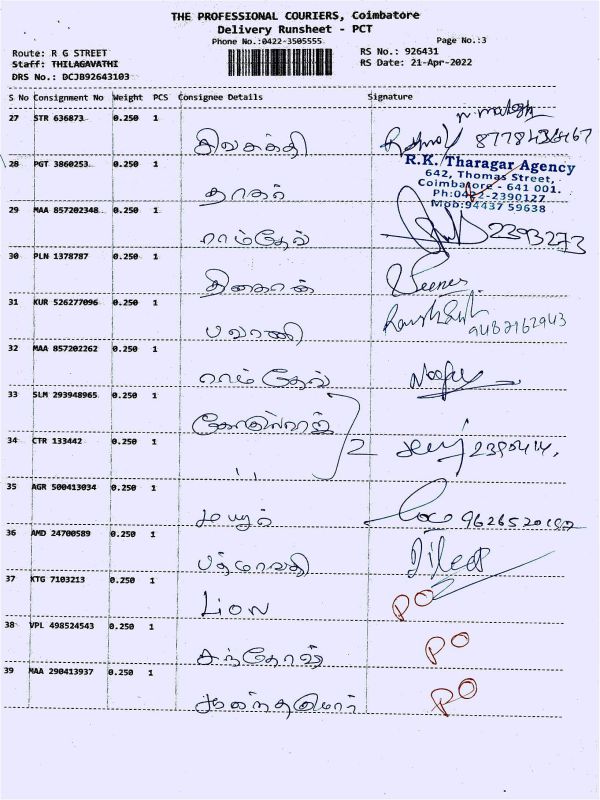 THE PROFESSIONAL COURIERS, Coimbatore
Delivery Runsheet - PCT
Phone No.:0422-3505555
Page No.:3
Route: R G STREET
RS No.: 926431
Staff: THILAGAVATHI
RS Date: 21-Apr-2022
DRS No.: DCJB92643103
S No Consignment No Weight PCS Consignee Details Signature
27 STR 636873 0.250 1
சிவசக்தி
28 PGT 3860253 0.250 1
R.K. Tharagar Agency
642, Thomas Street,
Coimbatore - 641 001.
Ph:0422-2390127
Mob:94437 59638
தாகர்
29 MAA 857202348 0.250 1
ராம்தேவ் 2393273
30 PLN 1378787 0.250 1
31 KUR 526277096 0.250 1
பவானி
32 MAA 857202262 0.250 1
ராம் தேவ்
33 SLM 293948965 0.250 1
கோகுல்ராஜ்
34 CTR 133442 0.250 1
" 2
35 AGR 500413034 0.250 1
மயூர்
36 AMD 24700589 0.250 1
பத்மாவதி Dileep
37 KTG 7103213 0.250 1
Lion PO
38 VPL 498524543 0.250 1
சந்தோஷ் PO
39 MAA 290413937 0.250 1
ஆனந்தகுமார் PO